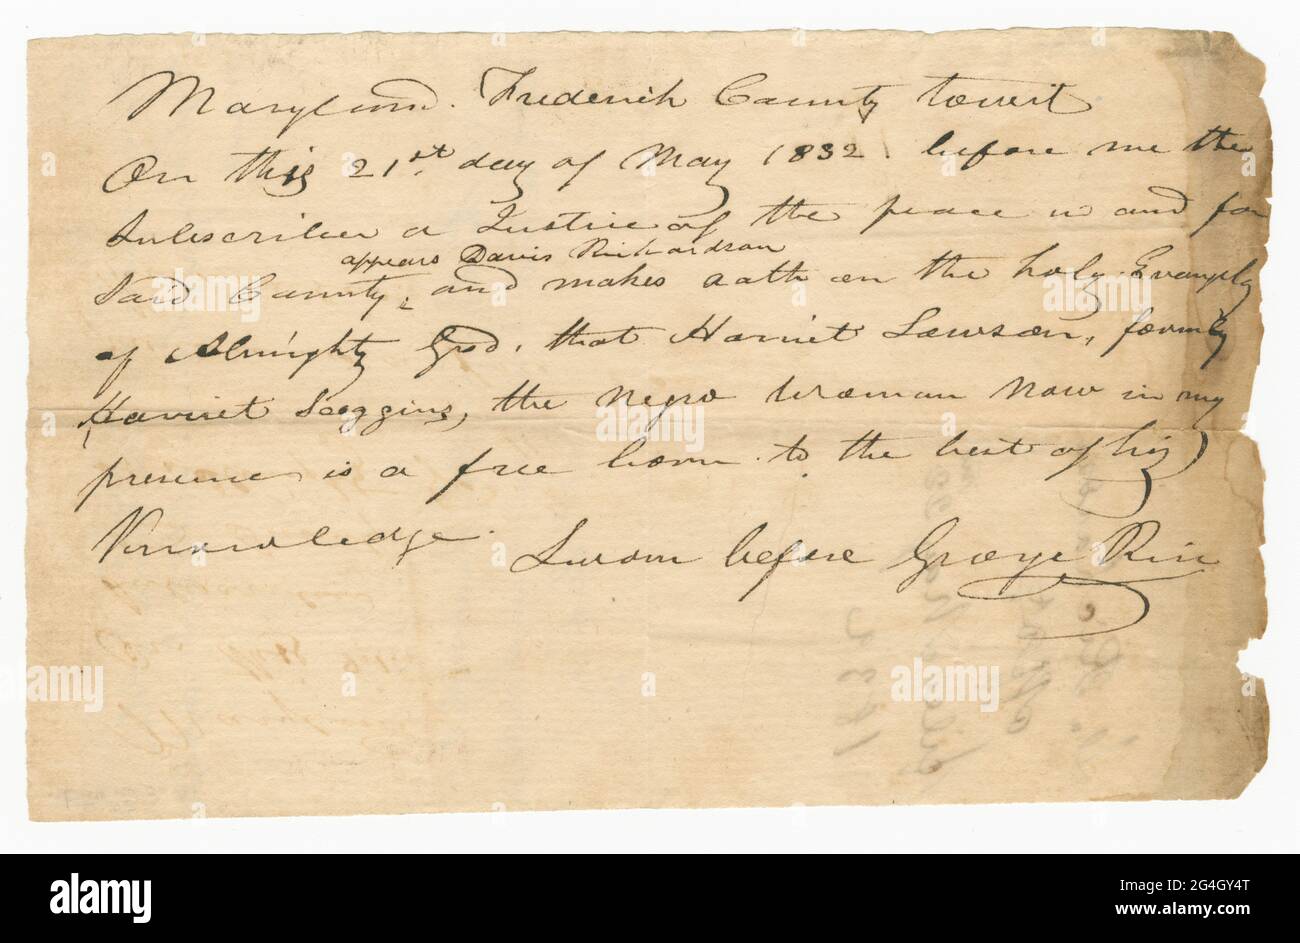 Maryland. Frederick County towit
On this 21st. day of May 1832. before me the
Subscriber a Justice of the peace in and for
appears Davis Richardson
Said County, and makes oath on the holy Evangely
of Almighty God, that Harriet Lawson, formerly
Harriet Scoggins, the Negro Woman Now in my
presence is a free born to the best of his
Knowledge.
Sworn before George Rice
alamy
Image ID: 2G4GY4T
www.alamy.com